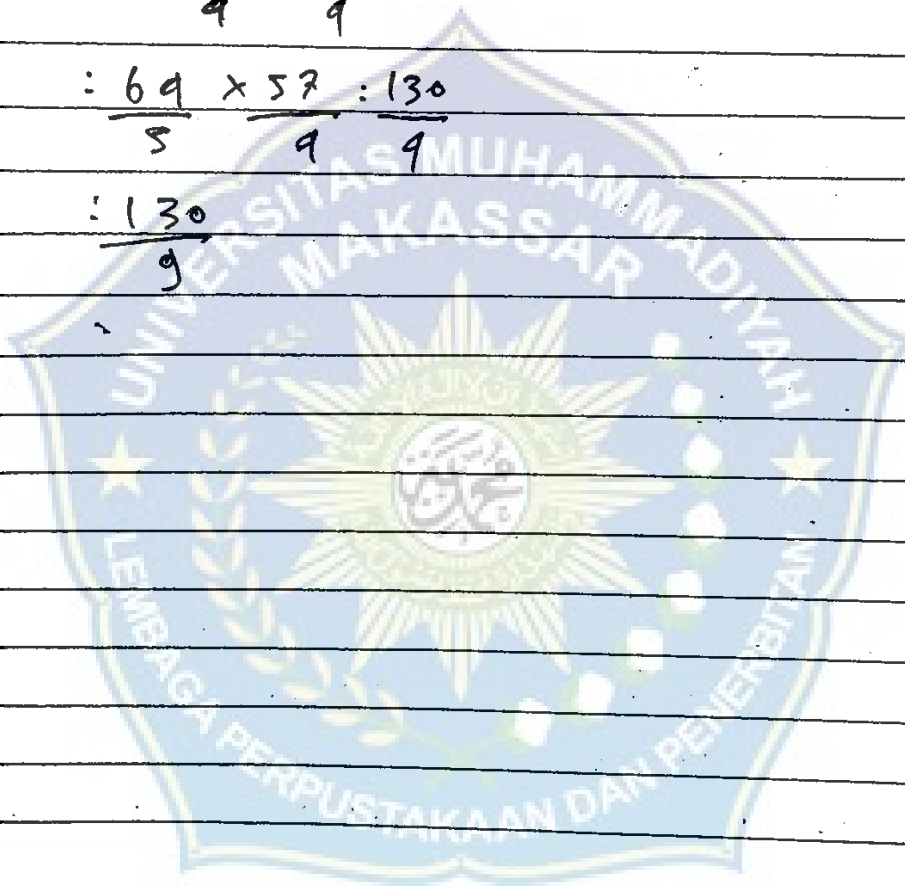 9 9
: 69 × 57 : 130
5 9 9
: 130
9
UNIVERSITAS MUHAMMADIYAH
MAKASSAR
LEMBAGA PERPUSTAKAAN DAN PENERBITAN